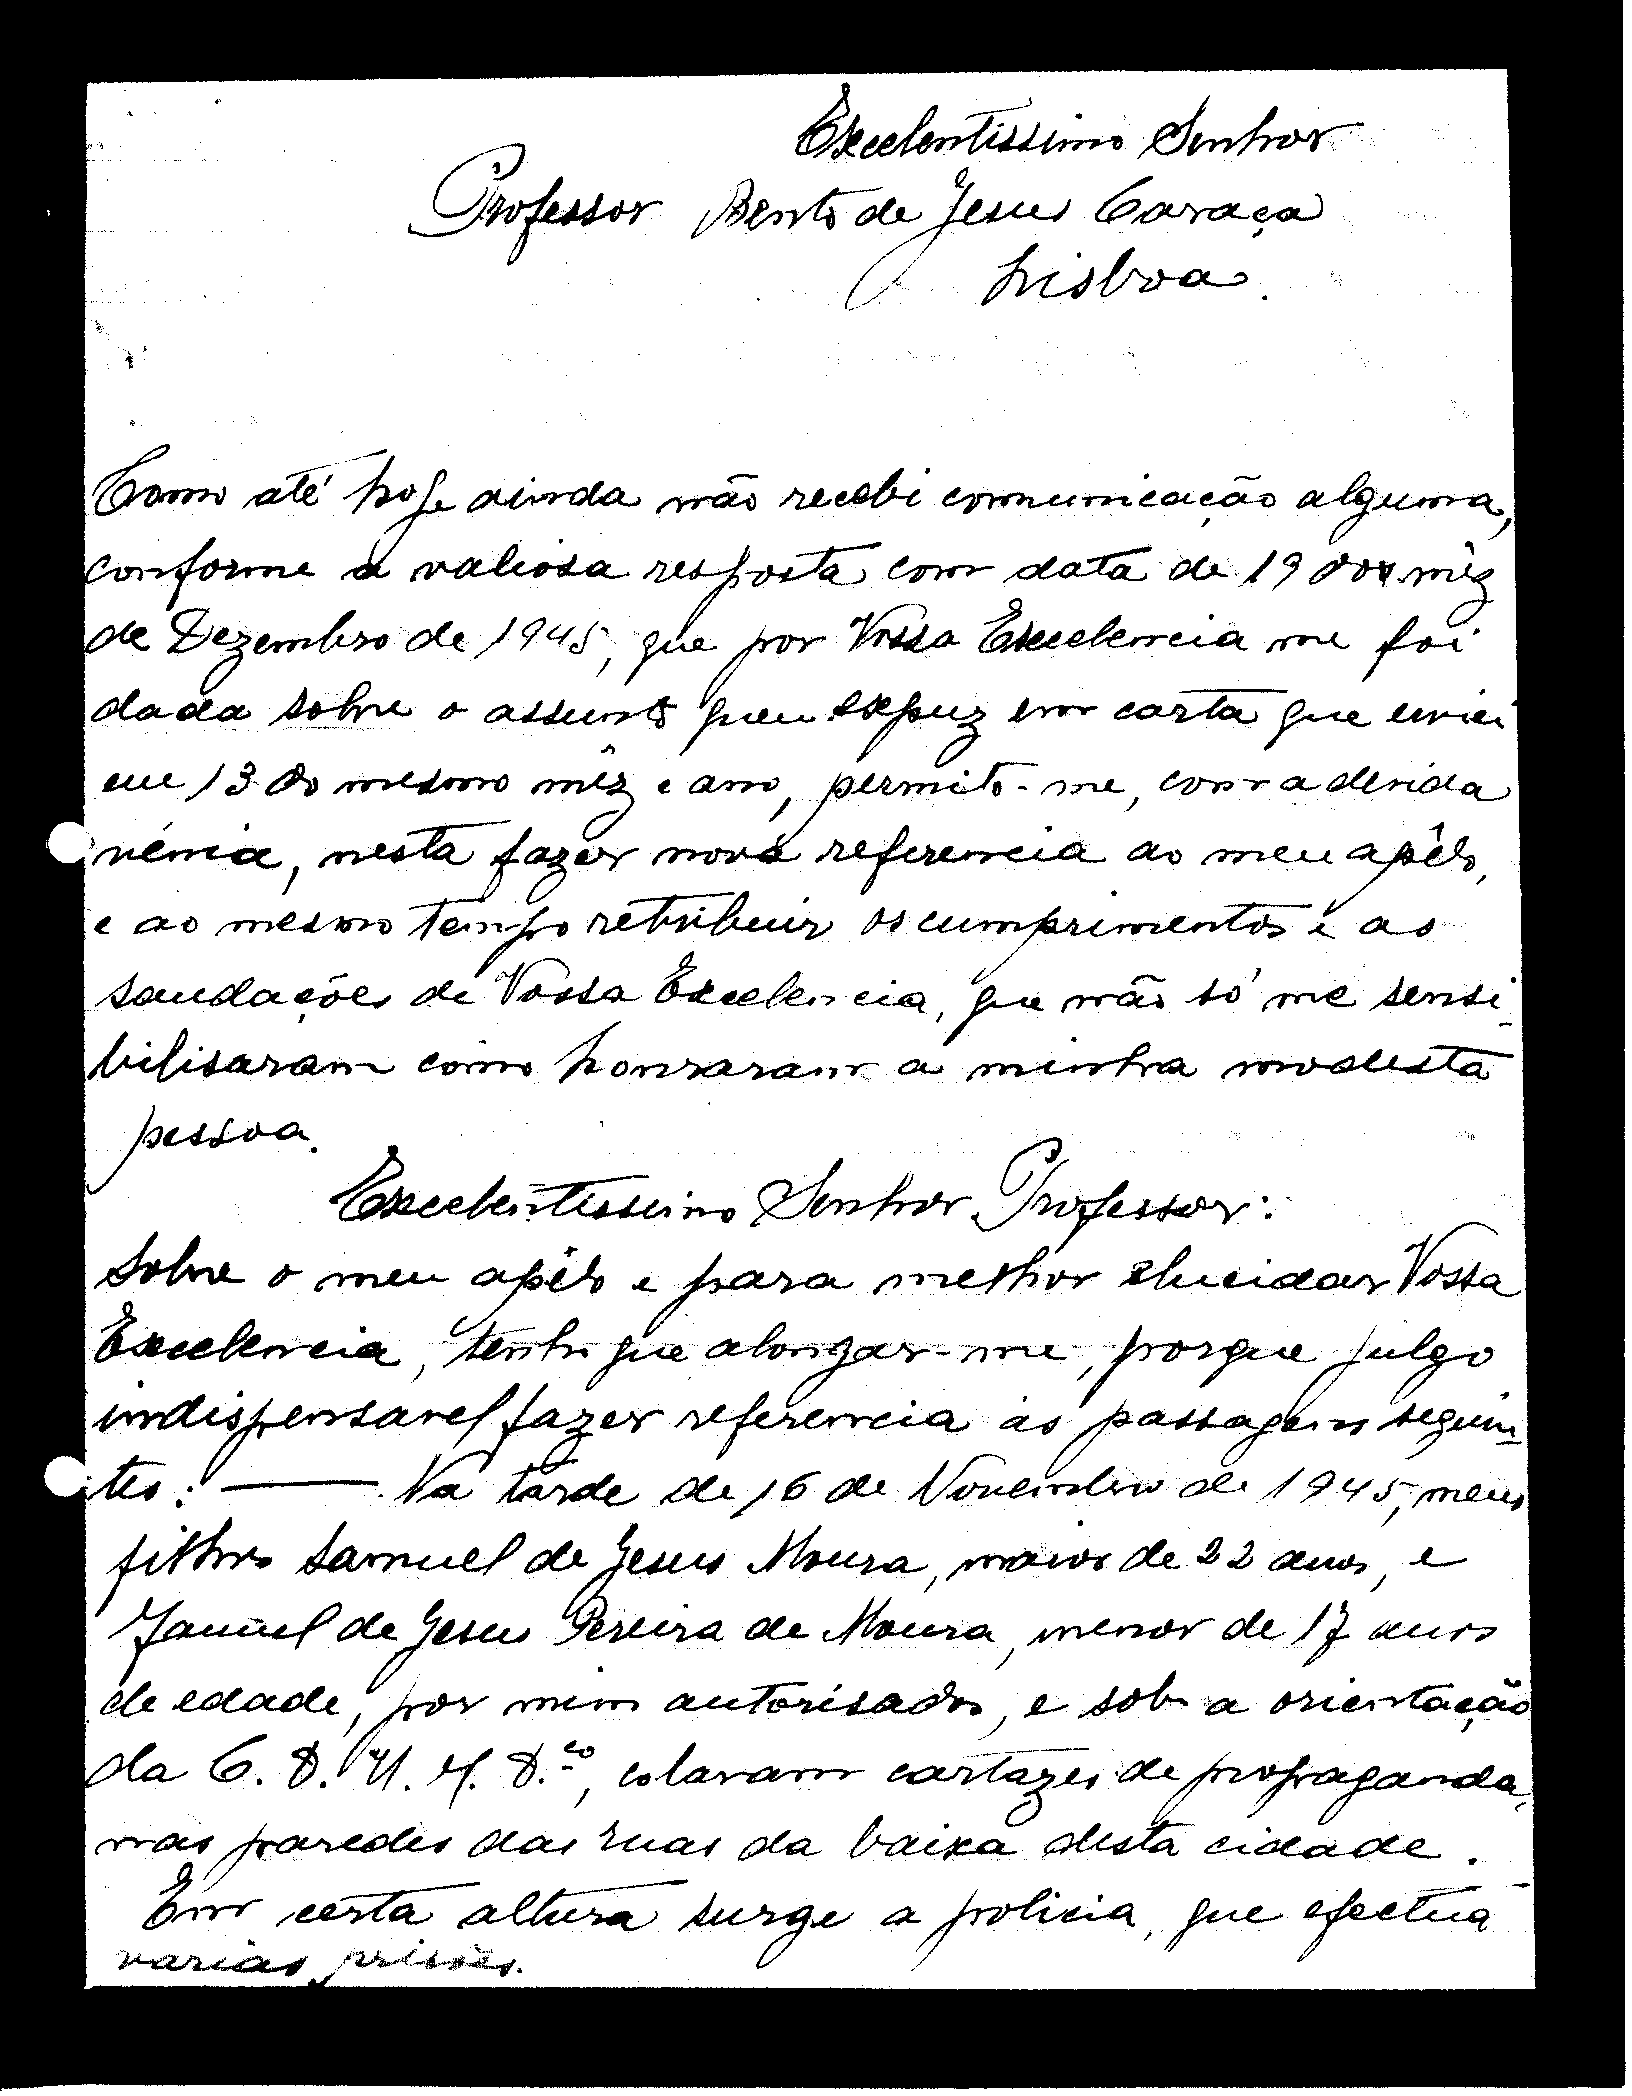 Excelentissimo Senhor
Professor Bento de Jesus Caraça
Lisboa.
Como até hoje ainda não recebi comunicação alguma,
conforme a valiosa resposta com data de 19 do mêz
de Dezembro de 1945, que por Vossa Excelencia me foi
dada sobre o assunto que expuz em carta que enviei
em 13 do mesmo mêz e ano, permito-me, com a devida
vénia, nesta fazer nova referencia ao meu apêlo,
e ao mesmo tempo retribuir os cumprimentos e as
saudações de Vossa Excelencia, que não só me sensi-
bilisaram como honraram a minha modesta
pessoa.
Excelentissimo Senhor Professor:
Sobre o meu apêlo e para melhor elucidar Vossa
Excelencia, tenho que alongar-me, porque julgo
indispensavel fazer referencia ás passagens seguin-
tes: — Na tarde de 16 de Novembro de 1945, meus
filhos Samuel de Jesus Moura, maior de 22 anos, e
de Jesus Pereira de Moura, menor de 17 anos
de edade, por mim autorisados, e sob a orientação
da C. D. U. M. D.co, colavam cartazes de propaganda,
nas paredes das ruas da baixa desta cidade.
Em certa altura surge a policia, que efectua
varias prisões.